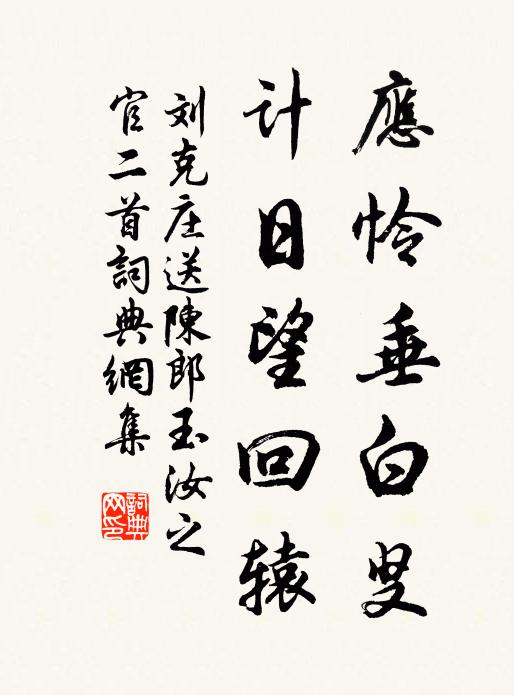 應怜垂白叟
计日望回辕
刘克庄送陳郎玉汝之
官二首詞典網集
詞典網印